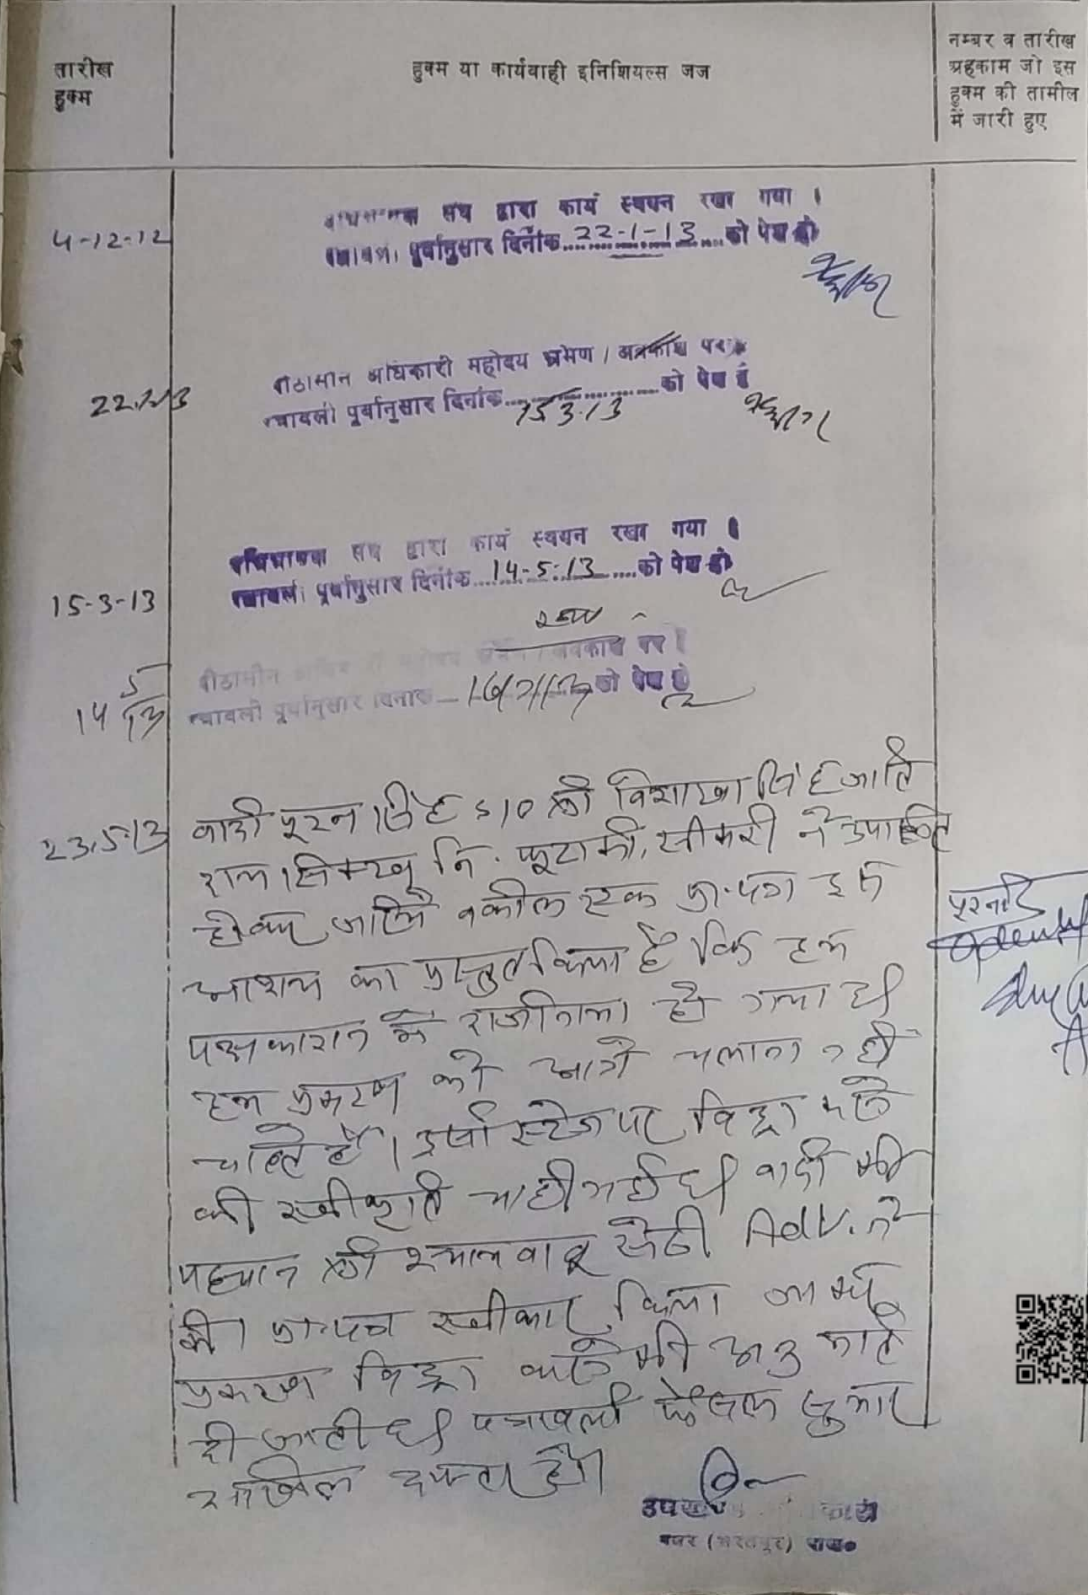 तारीख
हुक्म
हुक्म या कार्यवाही इनिशियल्स जज
नम्बर व तारीख
अहकाम जो इस
हुक्म की तामील
में जारी हुए
4-12-12
संघ द्वारा कार्य स्थगन रखा गया ।
पूर्वानुसार दिनांक 22-1-13 को पेश हो
पीठासीन अधिकारी महोदय भ्रमण / अवकाश पर
पत्रावली पूर्वानुसार दिनांक 15.3.13 को पेश हो
15-3-13
अभिभाषक संघ द्वारा कार्य स्थगन रखा गया ।
पूर्वानुसार दिनांक 14-5-13 को पेश हो
14 5/13
पीठासीन महोदय अवकाश पर ।
पत्रावली पूर्वानुसार दिनांक को पेश हो
23.5.13
वादी पूरन सिंह S/O श्री विशाखा सिंह जाति
राय सिक्ख नि. सीकरी ने उपस्थित
होकर जरिये वकील एक प्रा.पत्र इस
आशय का प्रस्तुत किया है कि हम
पक्षकारान में राजीनामा हो गया है।
हम प्रकरण को आगे चलाना नहीं
चाहते हैं। इसी स्टेज पर विड्रा करने
की स्वीकृति चाही गई है। वादी की
पहचान श्री श्याम बाबू सेठी Adv. ने
की। प्रा.पत्र स्वीकार किया जाकर
प्रकरण विड्रा करने की अनुमति
दी जाती है। पत्रावली फैसल शुमार
दाखिल दफ्तर हो।
नगर (भरतपुर) राज०